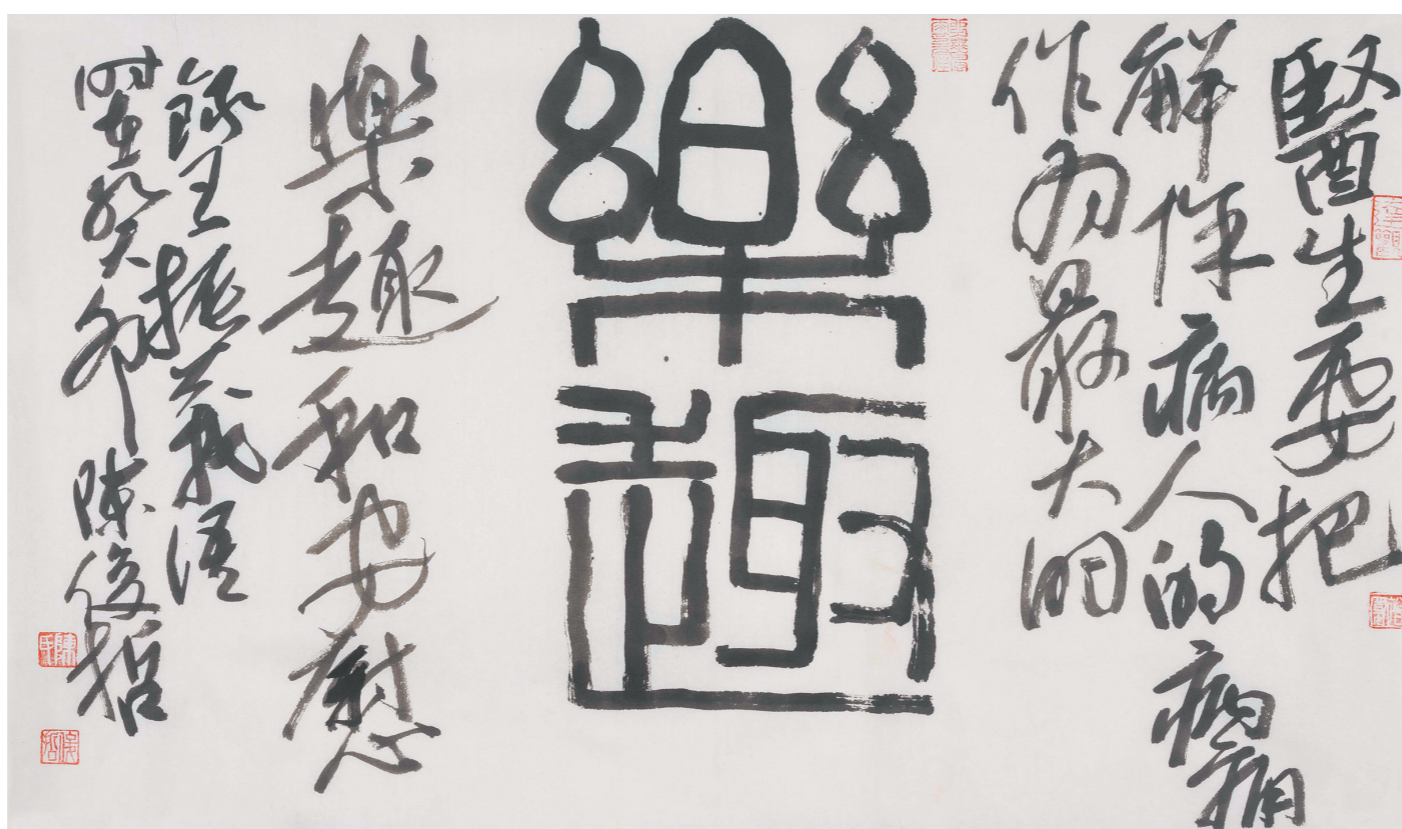 醫生要把
解除病人的病痛
作为最大的
樂趣
樂趣和安慰
錄王振義語
時在癸卯 陳俊哲
俊哲